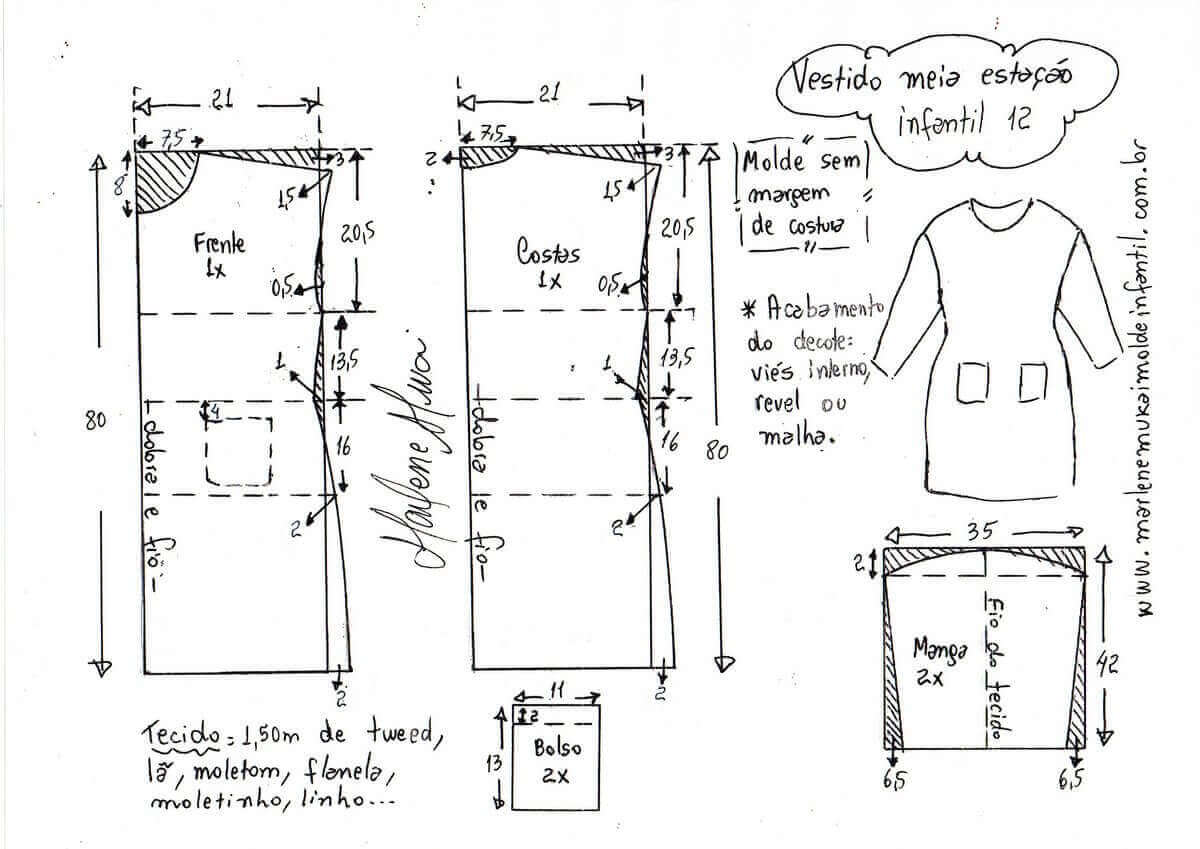 Vestido meia estação
infantil 12
www.marlenemukaimoldeinfantil.com.br
21
7,5
8
3
1,5
20,5
Frente
1x
0,5
13,5
1
80
4
16
dobra e fio
2
2
21
7,5
2
3
1,5
20,5
Costas
1x
0,5
13,5
1
16
80
dobra e fio
2
2
Molde sem
margem
de costura
* Acabamento
do decote:
viés interno,
revel ou
malha.
35
2
Fio do tecido
Manga
2x
42
6,5
6,5
11
2
13
Bolso
2x
Tecido = 1,50m de tweed,
lã, moletom, flanela,
moletinho, linho...